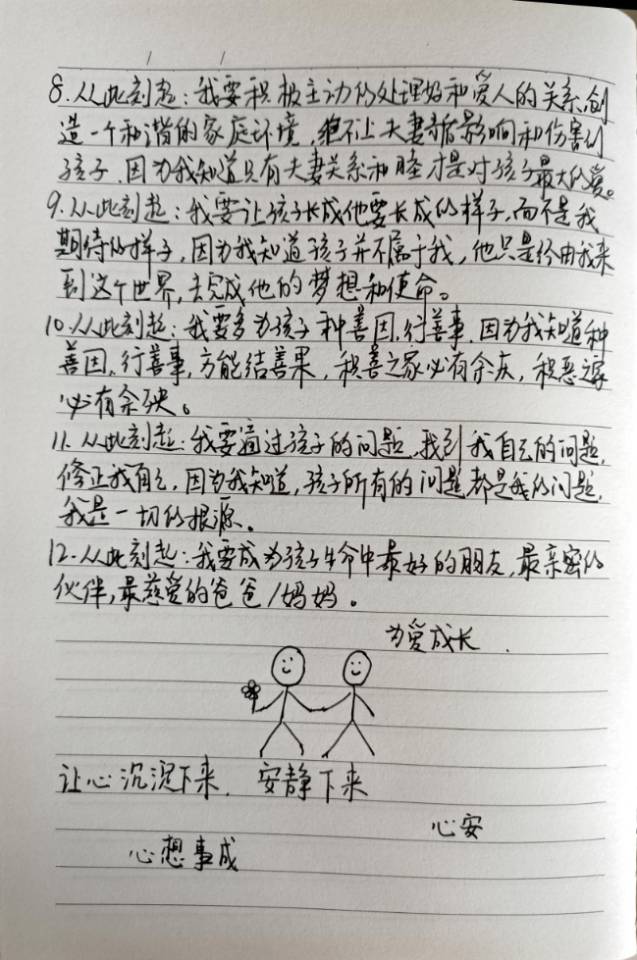 8.从此刻起:我要积极主动的处理好和爱人的关系,创
造一个和谐的家庭环境,绝不让夫妻矛盾影响和伤害到
孩子,因为我知道只有夫妻关系和睦才是对孩子最大的爱。
9.从此刻起:我要让孩子长成他要长成的样子,而不是我
期待的样子,因为我知道孩子并不属于我,他只是经由我来
到这个世界,去完成他的梦想和使命。
10.从此刻起:我要多为孩子种善因,行善事,因为我知道种
善因,行善事,方能结善果,积善之家必有余庆,积恶之家
必有余殃。
11.从此刻起:我要通过孩子的问题,找到我自己的问题,
修正我自己,因为我知道,孩子所有的问题都是我的问题,
我是一切的根源。
12.从此刻起:我要成为孩子生命中最好的朋友,最亲密的
伙伴,最慈爱的爸爸/妈妈。
为爱成长.
让心沉淀下来,安静下来
心安
心想事成